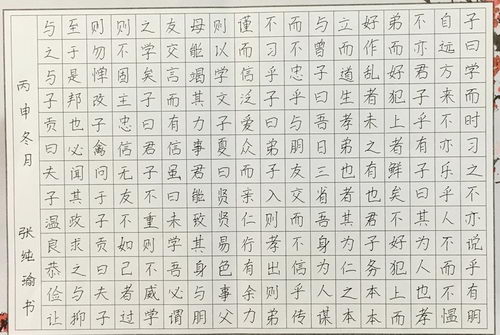 子曰学而时习之不亦说乎有朋
自远方来不亦乐乎人不而不愠
不亦君子乎有子曰其为人也孝
弟而好犯上者鲜矣不好犯上而
好作乱者未之有也君子务本本
立而道生孝弟也者其为仁之本
与曾子曰吾日三省吾身为人谋
而不忠乎与朋友交而不信乎传
不习乎子曰弟子入则孝出则弟
谨而信泛爱众而亲仁行有余力
则以学文子夏曰贤贤易色事父
母能竭其力事君能致其身与朋
友交言而有信虽曰未学吾必谓
之学矣子曰君子不重则不威学
则不固主忠信无友不如己者过
则勿惮改子禽问于子贡曰夫子
至于是邦也必闻其政求之与抑
与之与子贡曰夫子温良恭俭让
丙申冬月 张纯瑜书